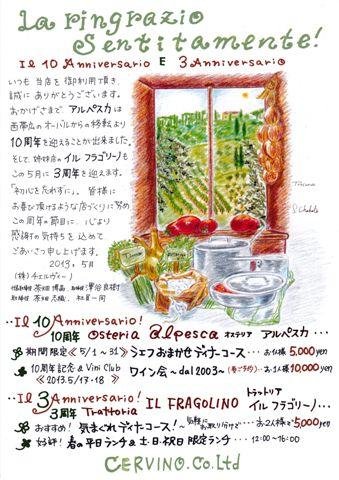 La ringrazio
Sentitamente!
Il 10 Anniversario E 3 Anniversario
いつも当店を御利用頂き、
誠にありがとうございます。
おかげさまで アルペスカは
西帯広のオーバルからの移転より
10周年を迎えることが出来ました。
そして、姉妹店の イル フラゴリーノも
この5月に 3周年を迎えます。
「初心を忘れずに」。皆様に
お喜び頂けるような店づくりに努め
この周年の節目に、心より
感謝の気持ちを込めて
ごあいさつ申し上げます。
2013. 5月
(株)チェルヴィーノ
社員一同
Toscana
··Il 10 Anniversario!
10周年 Osteria Alpesca オステリア アルペスカ ···
期間限定《5/1〜31》 シェフおまかせディナーコース···お1人様 5,000yen
10周年記念 & Vini Club 《2013.5/17·18》 ワイン会 〜dal 2003〜 お1人様 10,000yen
··Il 3 Anniversario!
3周年 Trattoria IL FRAGOLINO トラットリア イル フラゴリーノ···
おすすめ! 気まぐれディナーコース! 〜気軽にお取り分けで〜 ··お2人様で 5,000yen
好評! 春の平日ランチ & 土·日·祝日 限定ランチ ···12:00〜16:00
CERVINO.Co.Ltd